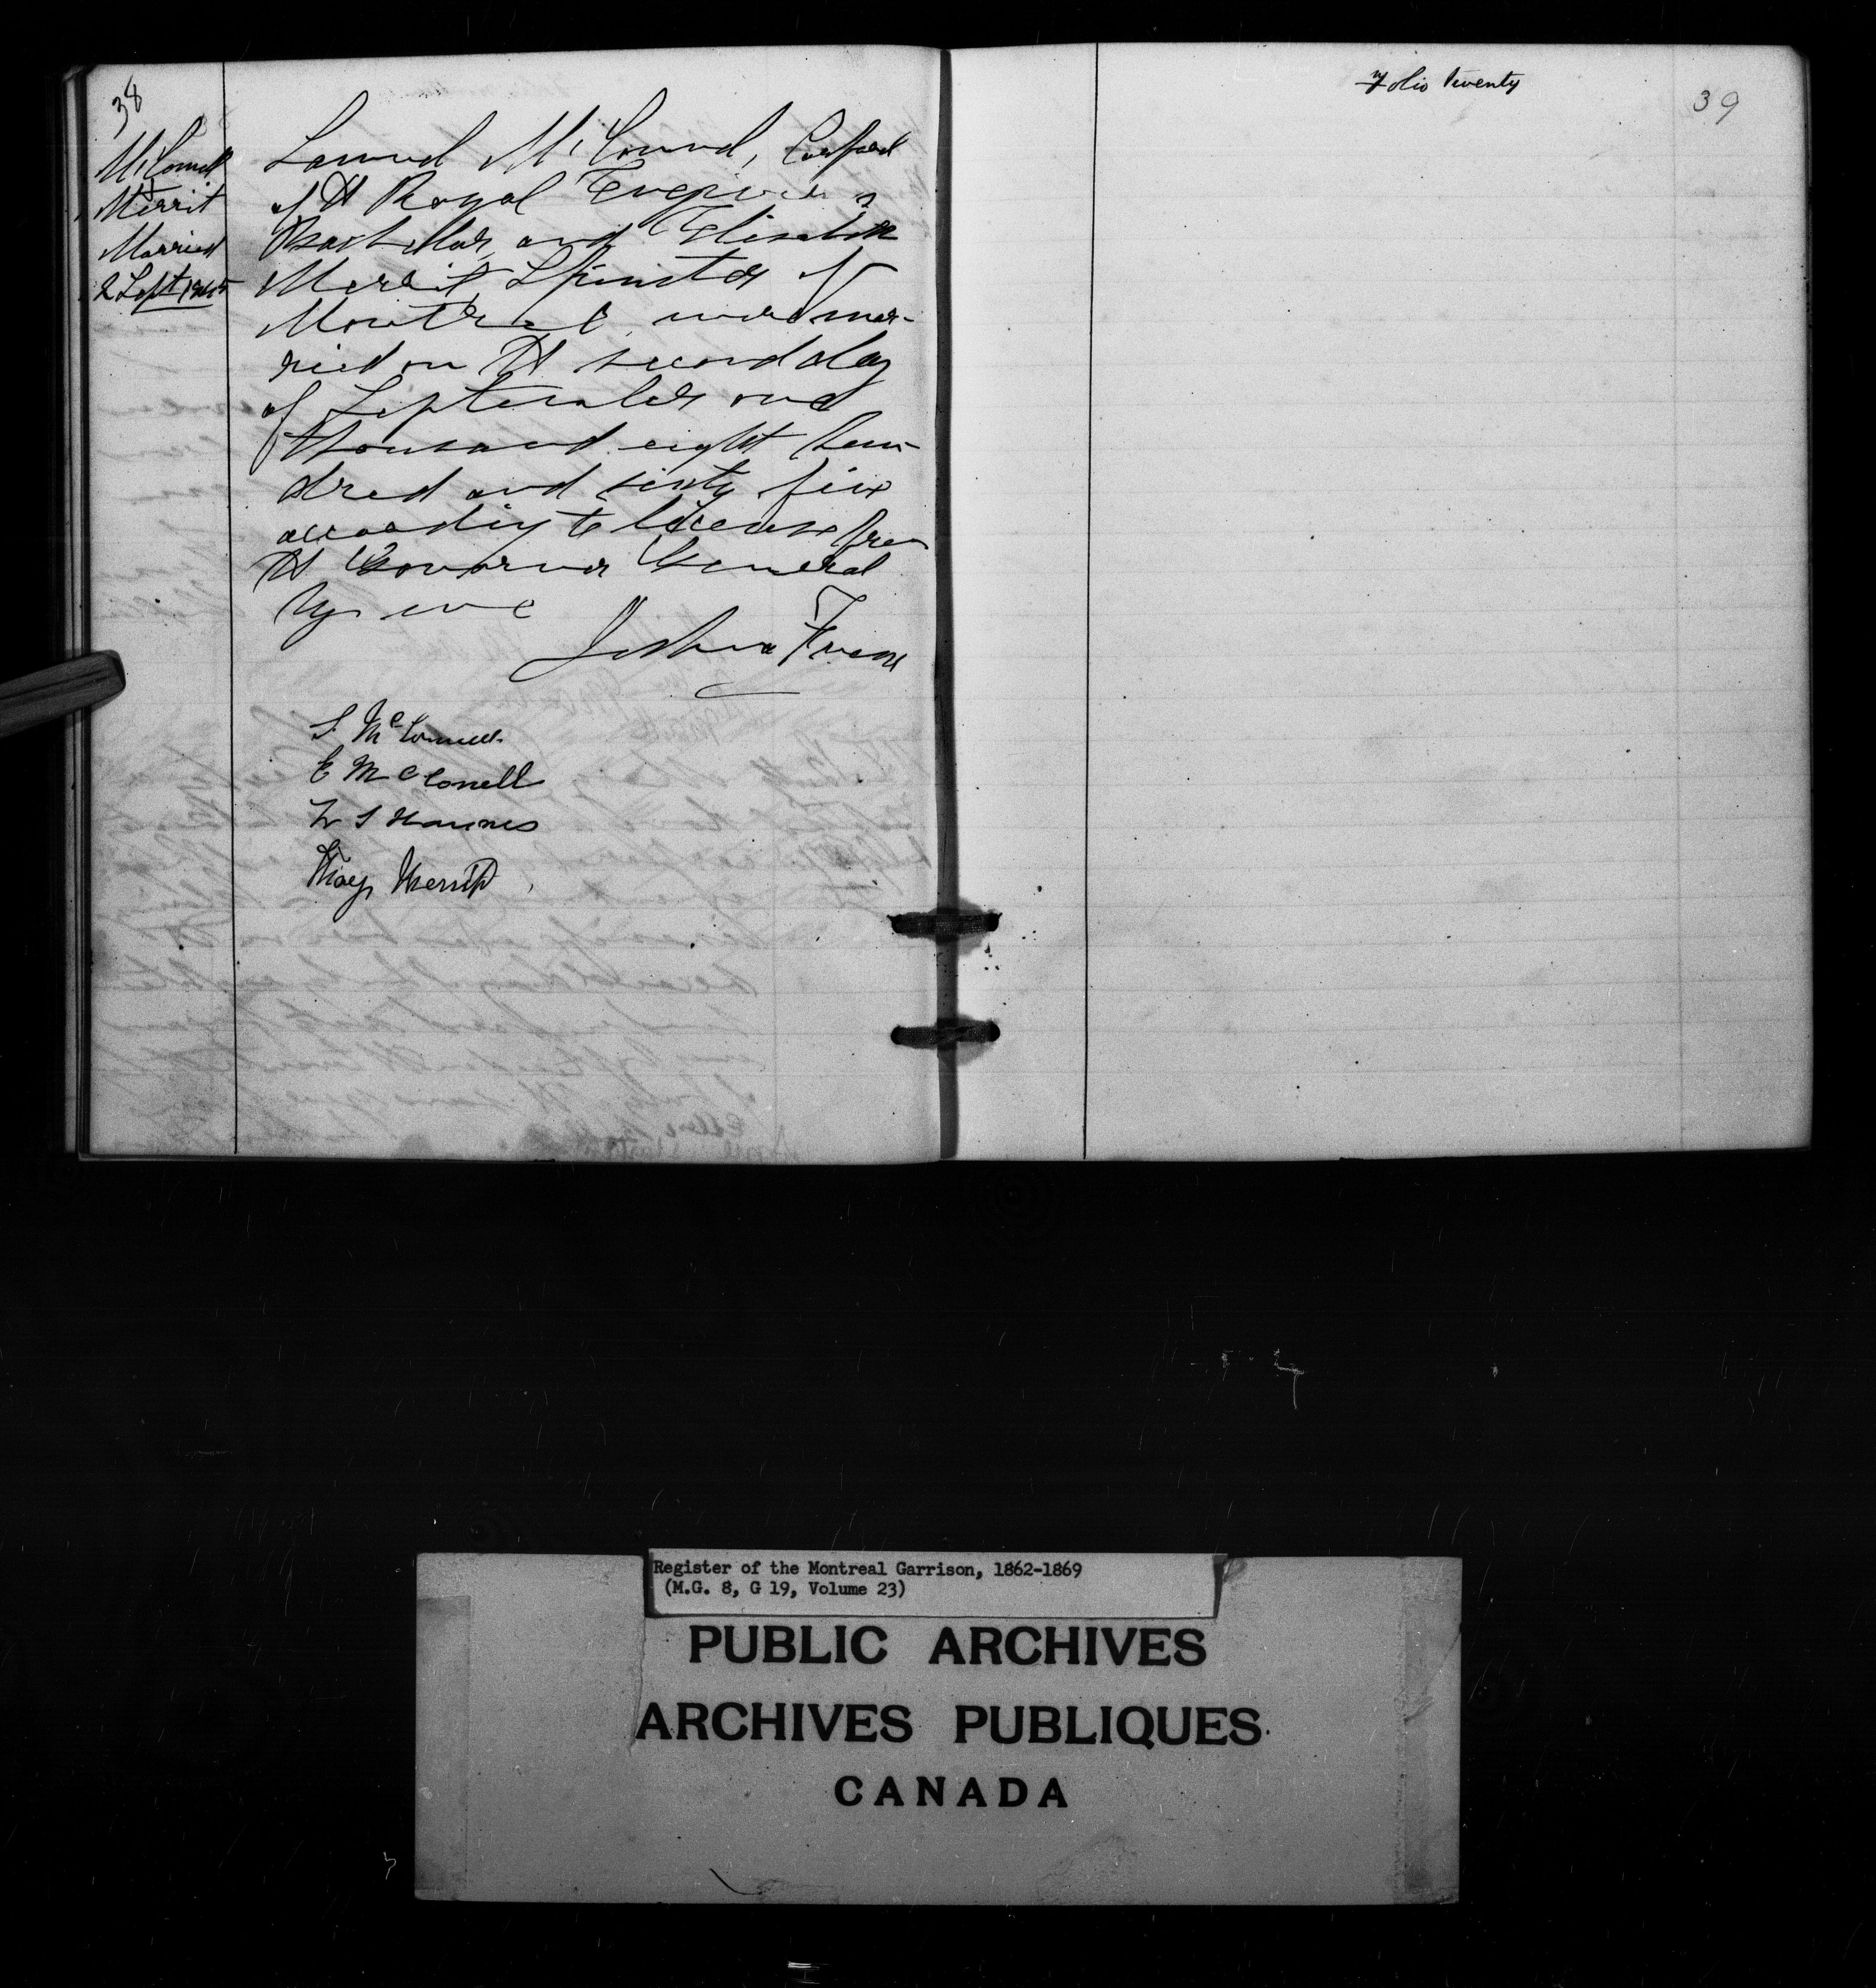 38
McConnell
&
Merrit
Married
2 Sept 1865
Samuel McConnel, Corporal
of the Royal Engineers
Bachellor, and Elizabeth
Merrit, Spinster of
Montreal, were mar-
ried on the second day
of September one
thousand eight hun-
dred and sixty five
according to license from
the Governor General
by me
Joshua
S. McConnell
E McConell
Mary Merritt
Folio twenty
39
Register of the Montreal Garrison, 1862-1869
(M.G. 8, G 19, Volume 23)
PUBLIC ARCHIVES
ARCHIVES PUBLIQUES
CANADA